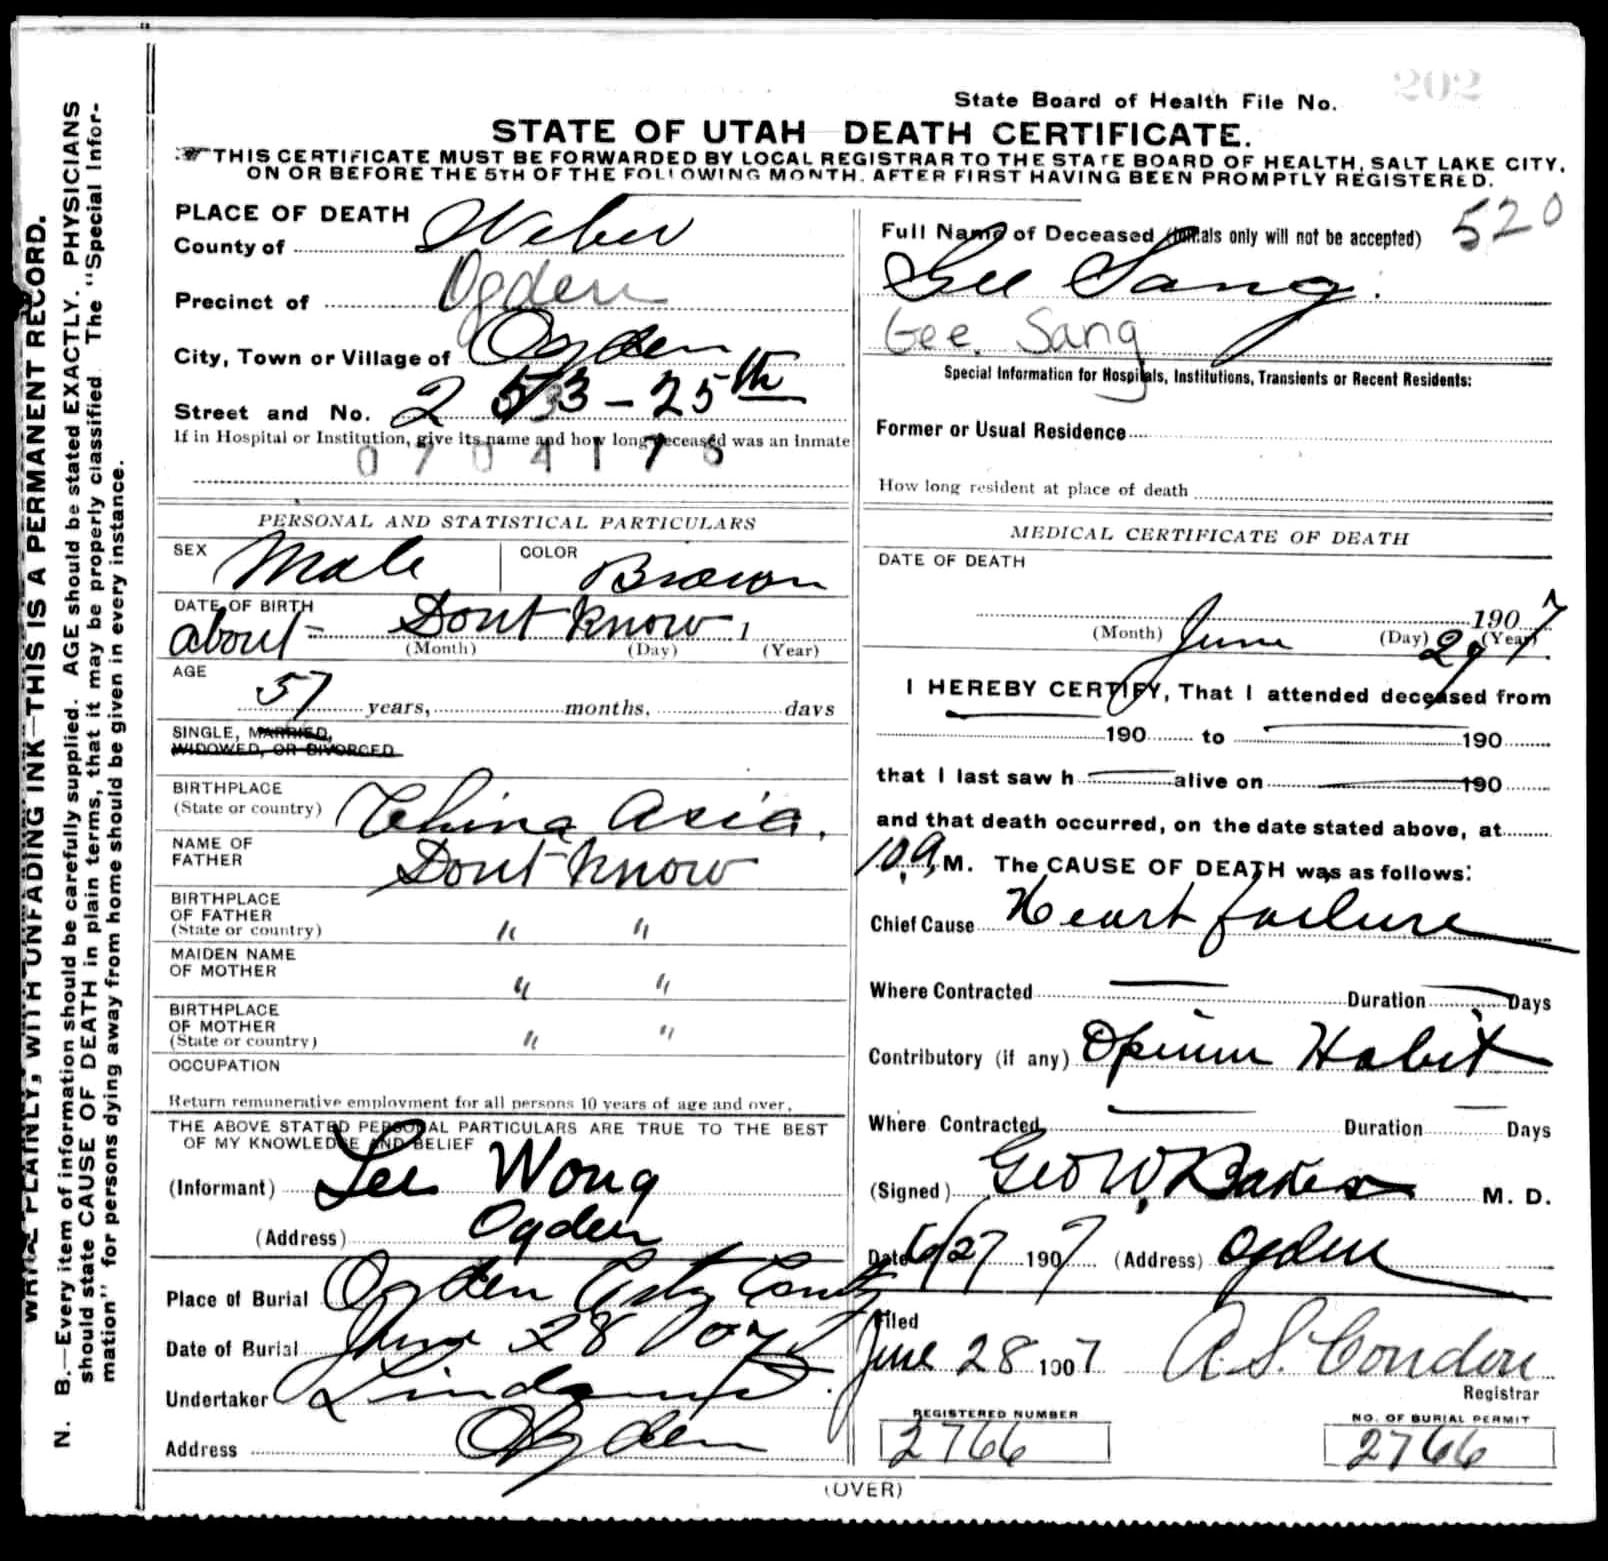 202
State Board of Health File No.
STATE OF UTAH DEATH CERTIFICATE.
THIS CERTIFICATE MUST BE FORWARDED BY LOCAL REGISTRAR TO THE STATE BOARD OF HEALTH, SALT LAKE CITY,
ON OR BEFORE THE 5TH OF THE FOLLOWING MONTH, AFTER FIRST HAVING BEEN PROMPTLY REGISTERED.
WRITE PLAINLY, WITH UNFADING INK—THIS IS A PERMANENT RECORD.
N. B.—Every item of information should be carefully supplied. AGE should be stated EXACTLY. PHYSICIANS
should state CAUSE OF DEATH in plain terms, that it may be properly classified. The "Special Infor-
mation" for persons dying away from home should be given in every instance.
PLACE OF DEATH
County of Weber
Precinct of Ogden
City, Town or Village of Ogden
Street and No. 253-25th
If in Hospital or Institution, give its name and how long deceased was an inmate
0704175
PERSONAL AND STATISTICAL PARTICULARS
SEX Male COLOR Brown
DATE OF BIRTH
about Dont know 1
(Month) (Day) (Year)
AGE
57 years, months, days
SINGLE, MARRIED,
WIDOWED, OR DIVORCED
BIRTHPLACE
(State or country) China Asia.
NAME OF
FATHER Dont know
BIRTHPLACE
OF FATHER
(State or country) " "
MAIDEN NAME
OF MOTHER " "
BIRTHPLACE
OF MOTHER
(State or country) " "
OCCUPATION
Return remunerative employment for all persons 10 years of age and over.
THE ABOVE STATED PERSONAL PARTICULARS ARE TRUE TO THE BEST
OF MY KNOWLEDGE AND BELIEF
(Informant) Lee Wong
(Address) Ogden
Place of Burial Ogden City
Date of Burial June 28 1907
Undertaker
Address Ogden
520
Full Name of Deceased (Initials only will not be accepted)
Gee Sang.
Gee. Sang
Special Information for Hospitals, Institutions, Transients or Recent Residents:
Former or Usual Residence
How long resident at place of death
MEDICAL CERTIFICATE OF DEATH
DATE OF DEATH
1907
(Month) June (Day) (Year) 7
I HEREBY CERTIFY, That I attended deceased from
190 to 190
that I last saw h alive on 190
and that death occurred, on the date stated above, at
M. The CAUSE OF DEATH was as follows:
Chief Cause Heart failure
Where Contracted Duration Days
Contributory (if any) Opium Habit
Where Contracted Duration Days
(Signed) Geo W. Baker M. D.
Date 6/27 1907 (Address) Ogden
Filed
June 28 1907 A. S. Condon
Registrar
REGISTERED NUMBER
2766
NO. OF BURIAL PERMIT
2766
(OVER)